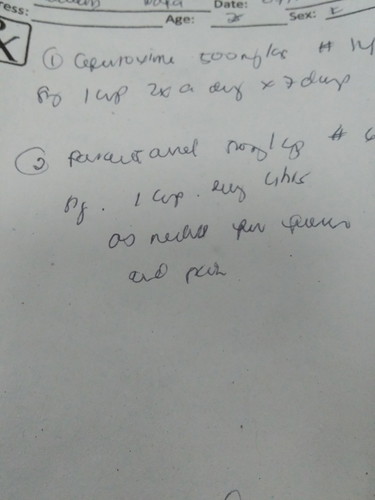 ress: Date:
Age: Sex: F
① Cefuroxime 500mg/cap # 14
Sig 1 cap 2x a day x 7 days
② Paracetamol 500mg/cap #
Sig. 1 cap. every 4hrs
as needed for fever
and pain